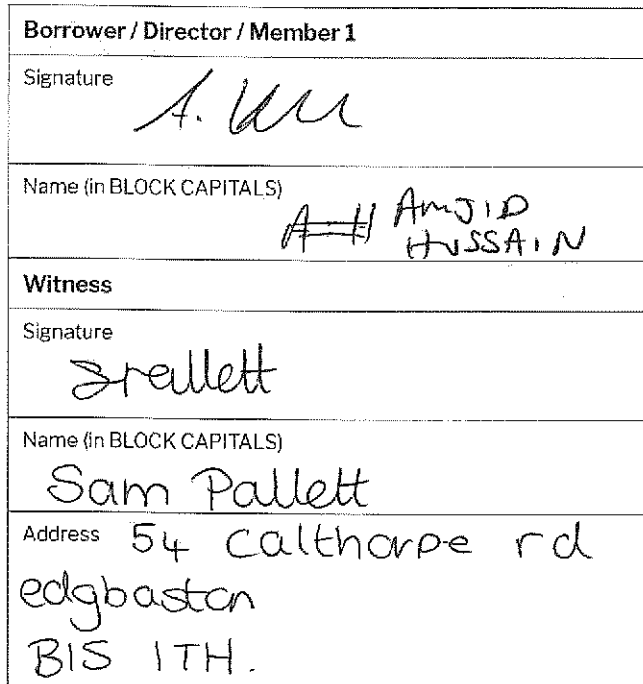 Borrower / Director / Member 1
Signature
Name (in BLOCK CAPITALS)
A=H AMJID
HUSSAIN
Witness
Signature
SPallett
Name (in BLOCK CAPITALS)
Sam Pallett
Address 54 Calthorpe rd
edgbaston
B15 1TH.